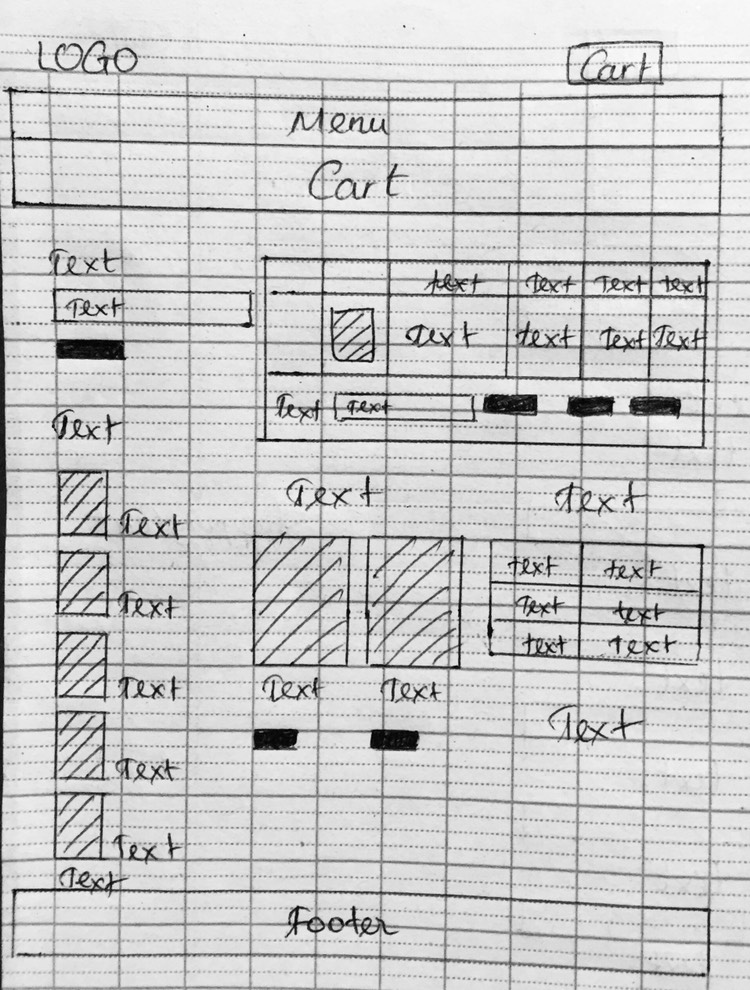 LOGO
Cart
Menu
Cart
Text
Text
Text
text Text Text text
Text text Text Text
Text Text
Text
Text
Text
Text
Text
Text
Text
Text
Text Text
Text
text text
Text text
text Text
Text
Footer